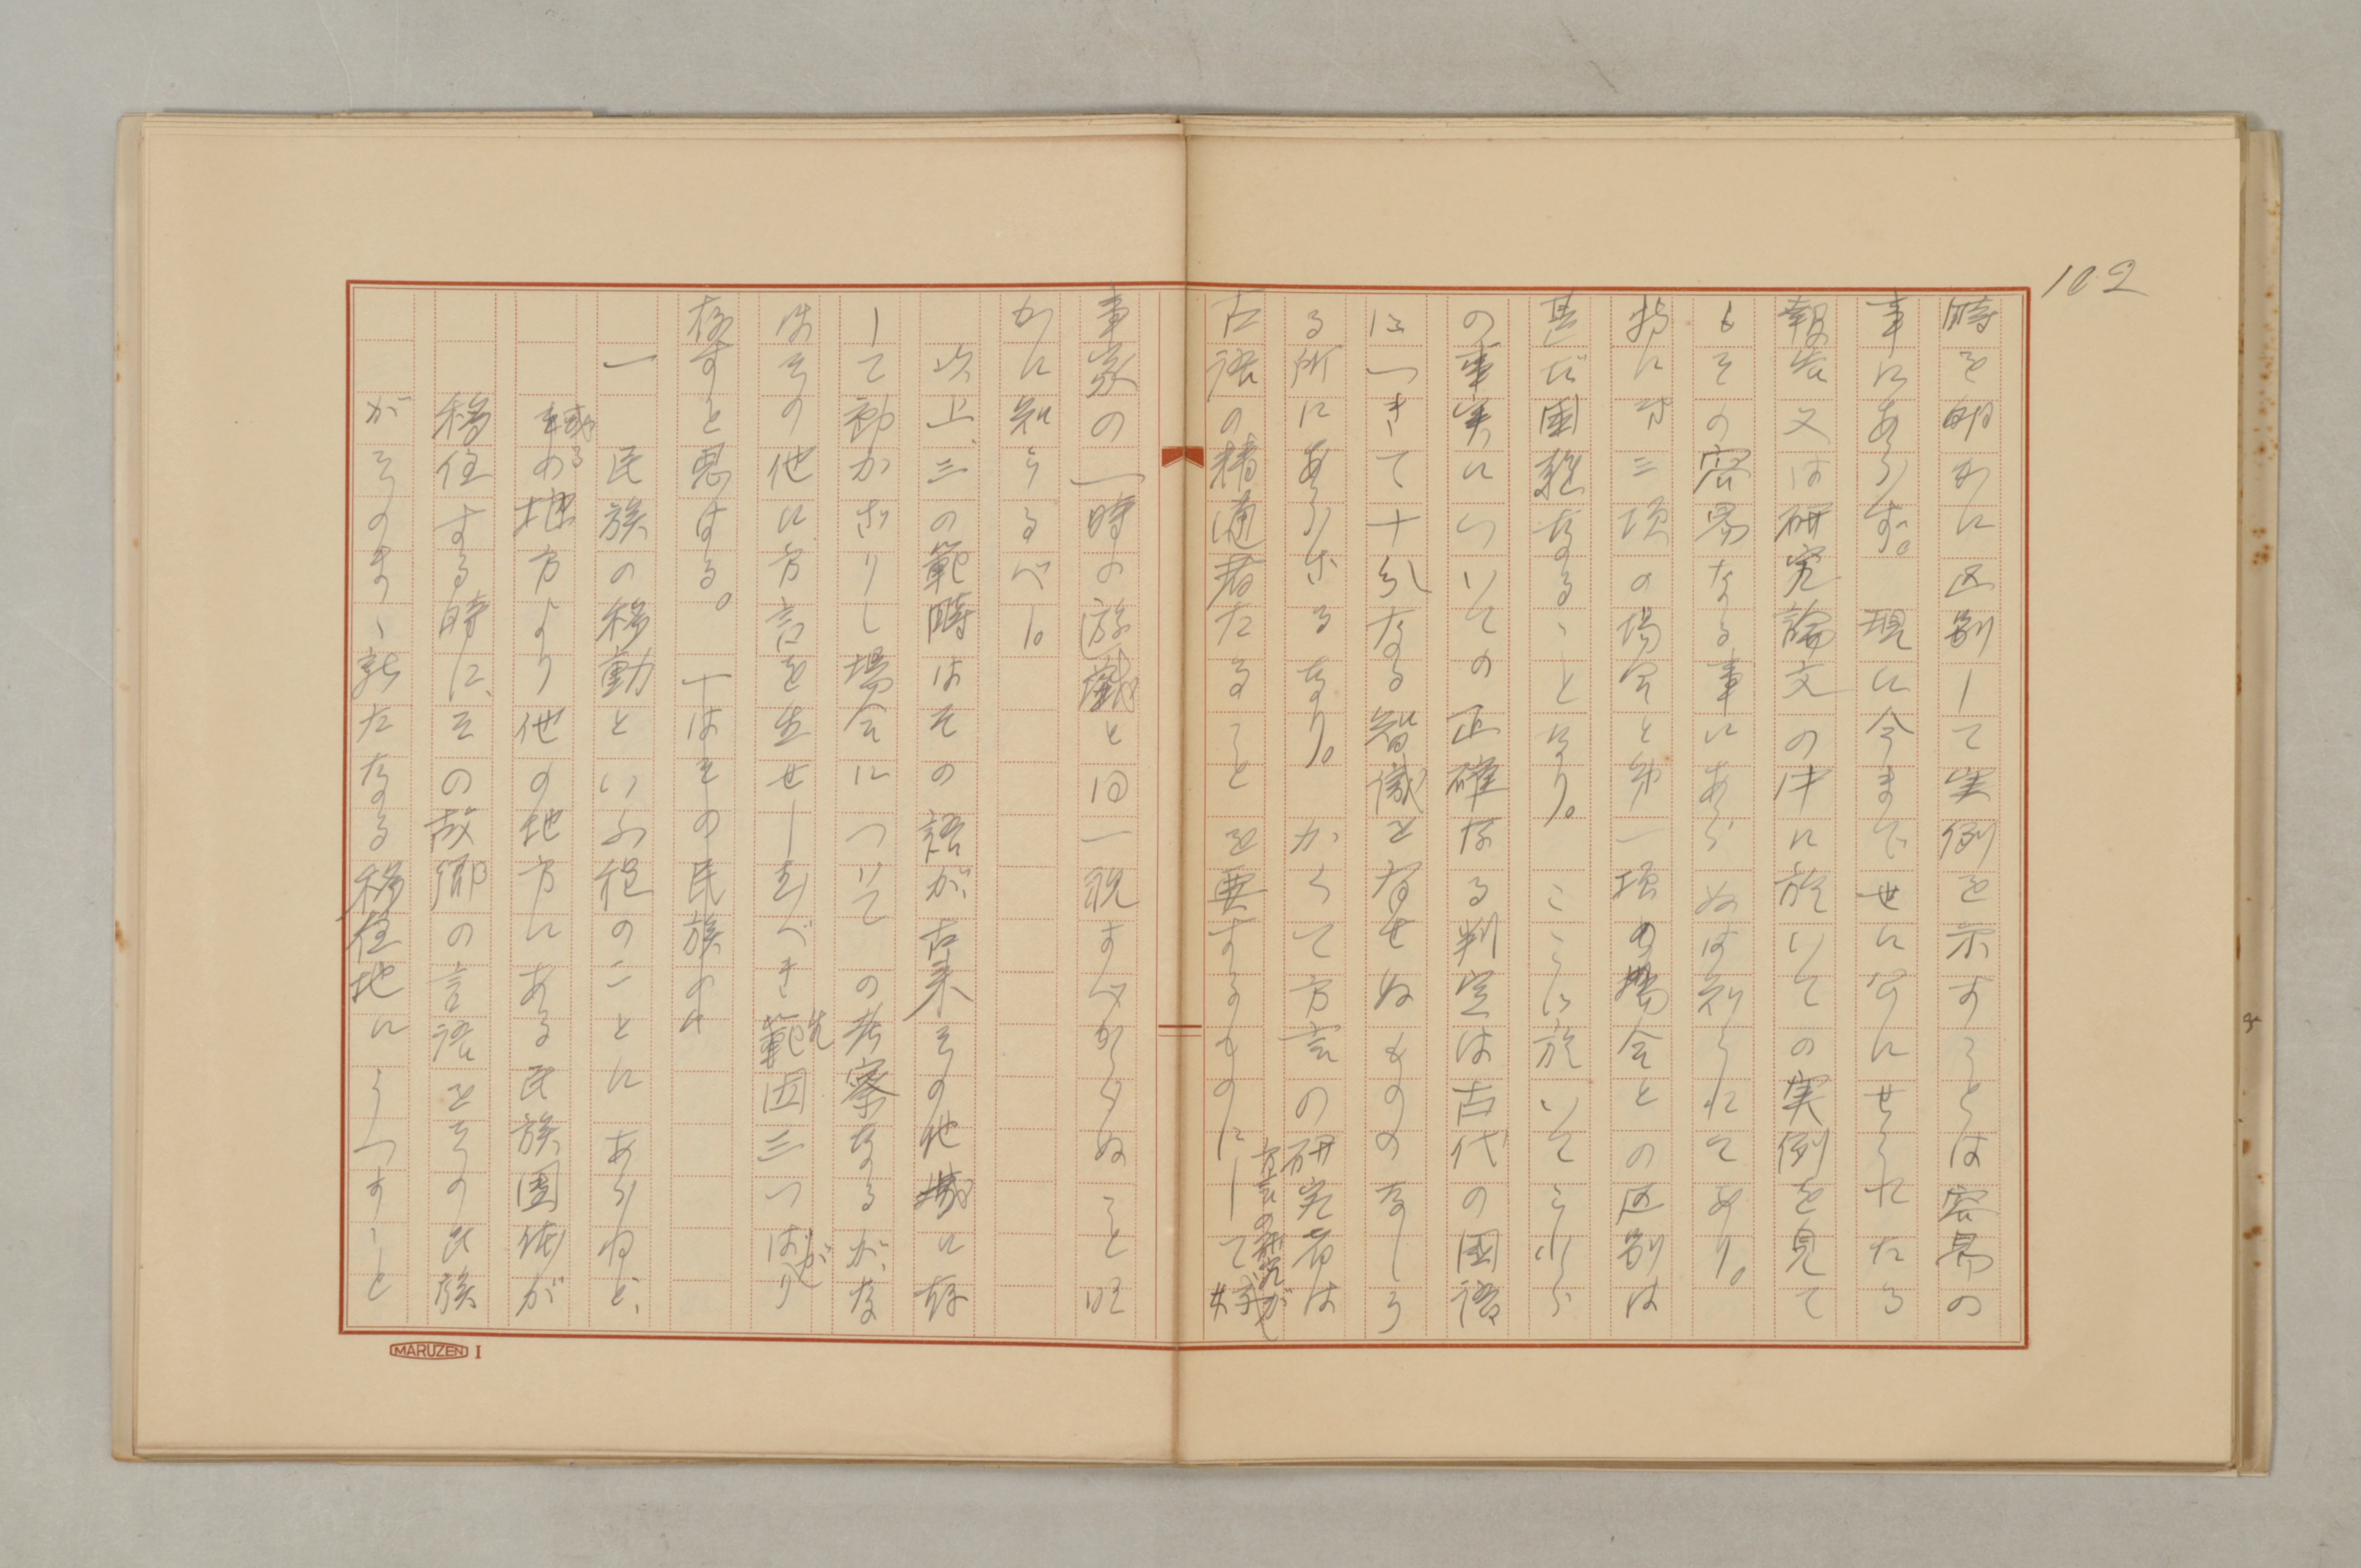 102
時を明かに区別して実例を示すことは容易の
事にあらず。現に今まで世に公にせられたる
報告又は研究論文の中に於いての実例を見て
もその容易なる事にあらぬは知られてあり。
特に第三項の場合と第一項の場合との区別は
甚だ困難なることなり。ここに於いてこれら
の事実についての正確なる判定は古代の国語
につきて十分なる智識を有せぬもののなしう
る所にあらざるなり。かくて方言の研究者は
古語の精通者たることを要するものにして
方言の研究が
事家の一時の遊戯と同一視すべからぬこと明
かに知らるべし。
以上、三の範疇はその語が古来その他域に存
して動かざりし場合についての考察なるが、な
ほその他に方言を生せしむべき範囲三つばかり
存すと思はる。一はその民族の
一 民族の移動といふ程のことにあらねど、
或る地方より他の地方にある民族団体が
移住する時に、その故郷の言語をその民族
がそのまゝ新たなる移住地にうつすこと
MARUZEN I